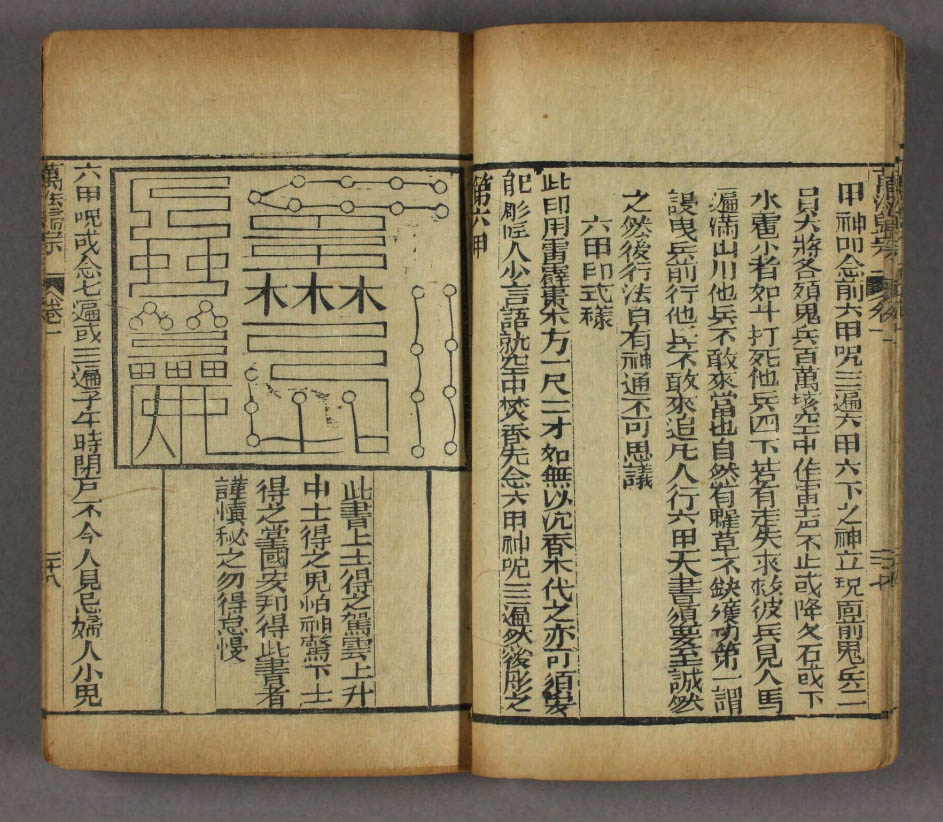 甲神叩念前六甲呪三遍六甲六下之神立現面前鬼兵二
員大將各領鬼兵百萬塡空中作雷声不止或降欠石或下
水雹小者如斗打死他兵四下若有走失求救彼兵見人馬
遍滿山川他兵不敢來當也自然有糧草不缺獲功第一謂
設曳兵前行他兵不敢來追凡人行六甲天書須要至誠然
之然後行法自有神通不可思議
六甲印式樣
此印用雷霹棗木方一尺二才如無以沉香木代之亦可須安
彫 人少言語就空中焚香先念六甲神呪三遍然後彫之
第六甲
萬法歸宗
卷一
二十七
木木木
此書上士得之駕雲上升
中士得之鬼怕神驚下士
得之當國安邦得此書者
謹慎秘之勿得怠慢
六甲呪或念七遍或三遍子午時閉戸不令人見忌婦人小児
萬法歸宗
卷一
二十八